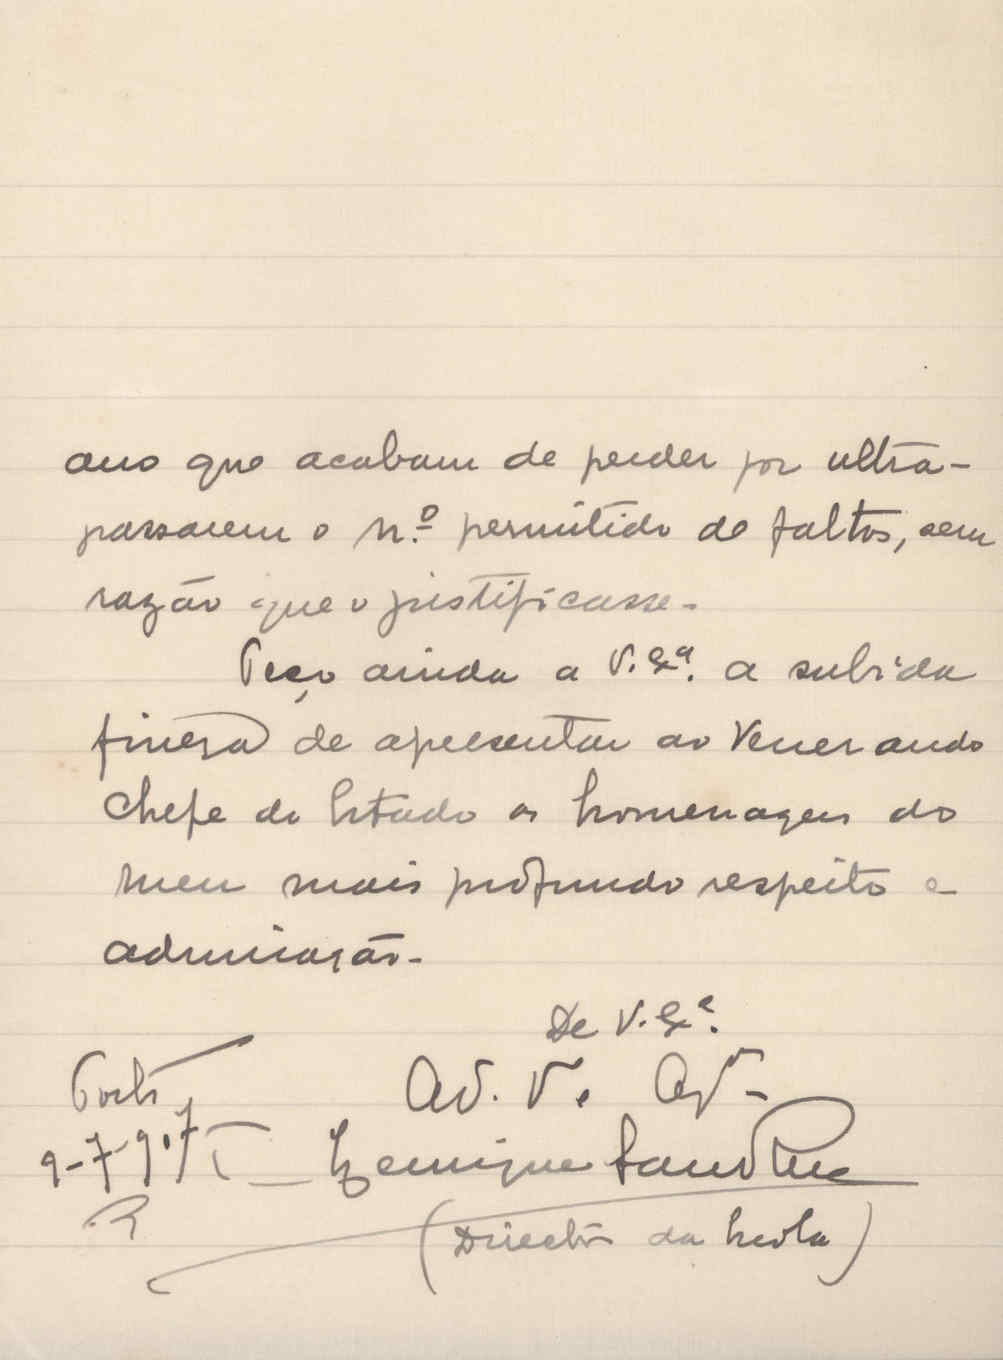 ano que acabam de perder por ultra-
passarem o n.º permitido de faltas, sem
razão que o justificasse.
Peço ainda a V. Exª. a subida
fineza de apresentar ao Venerando
Chefe do Estado as homenagens do
meu mais profundo respeito e
admiração.
De V. Exª.
At. V. e
Porto
9-7-9
Henrique
(Director da Escola)